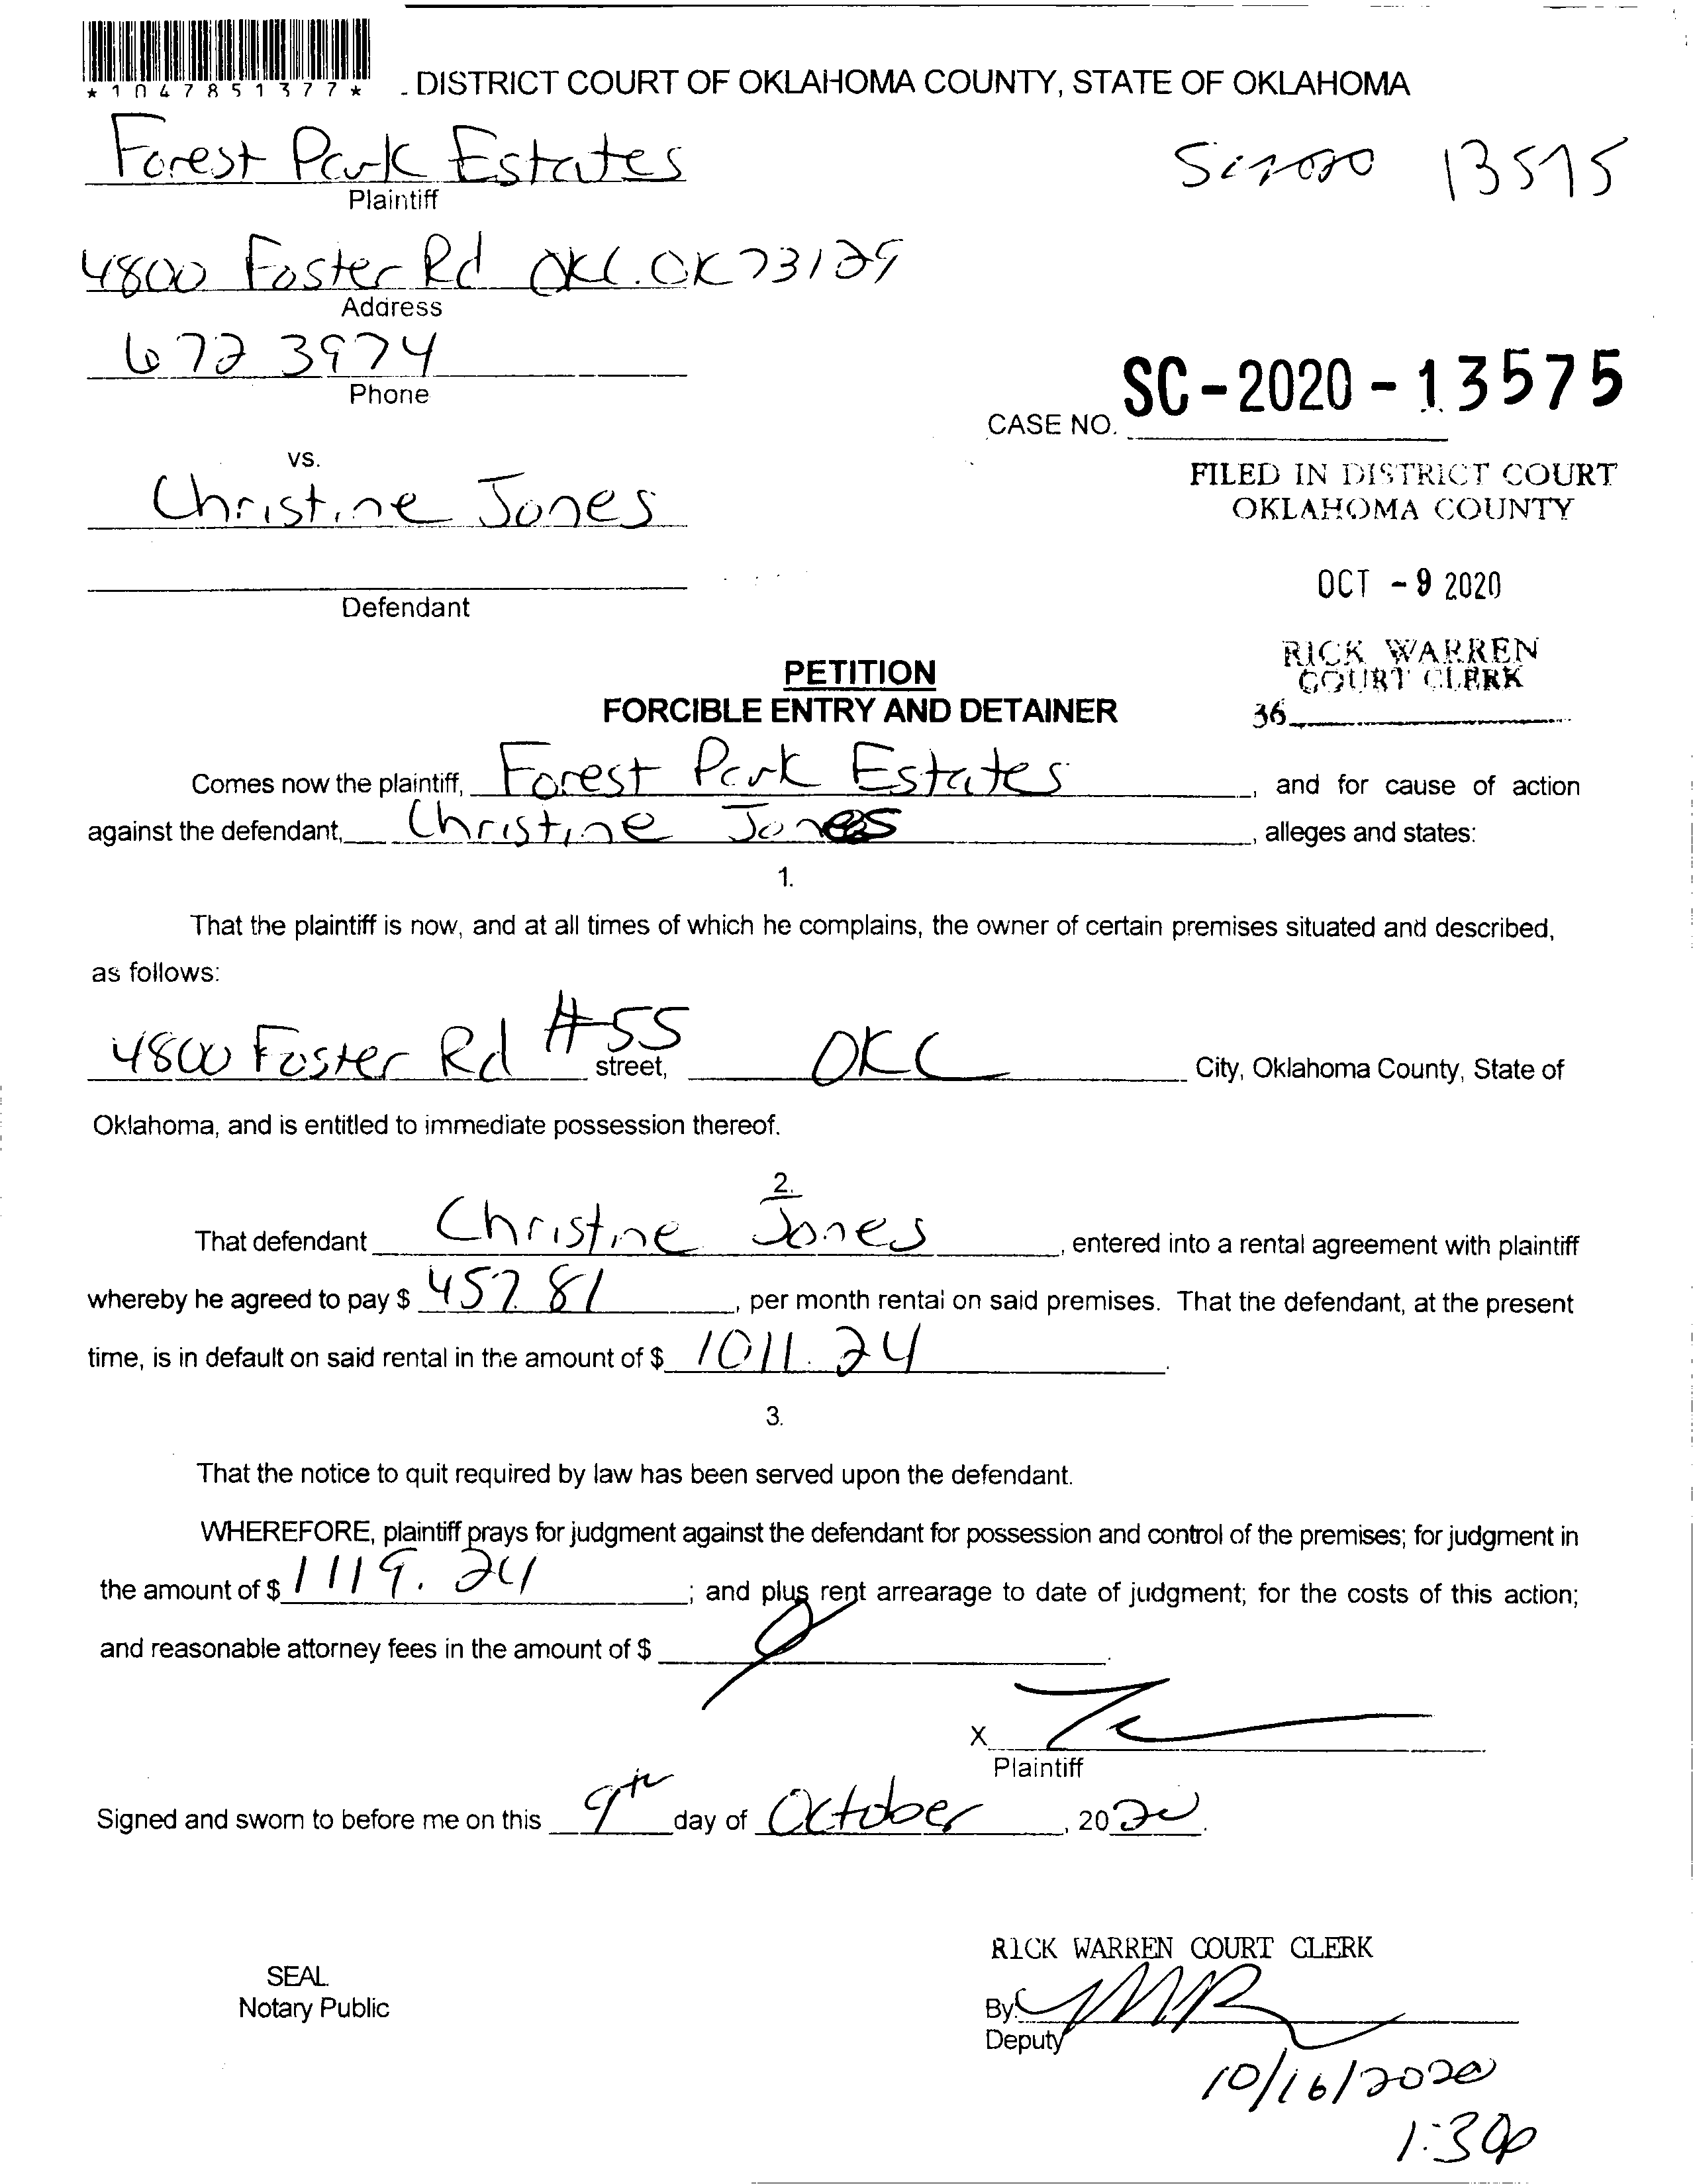 *1047851377*
DISTRICT COURT OF OKLAHOMA COUNTY, STATE OF OKLAHOMA
Forest Park Estates
Plaintiff
13575
4800 Foster Rd OKC. OK 73129
Address
672 3974
Phone
CASE NO. SC-2020-13575
vs.
FILED IN DISTRICT COURT
OKLAHOMA COUNTY
Christine Jones
OCT - 9 2020
Defendant
RICK WARREN
COURT CLERK
36
PETITION
FORCIBLE ENTRY AND DETAINER
Comes now the plaintiff, Forest Park Estates, and for cause of action
against the defendant, Christine Jones, alleges and states:
1.
That the plaintiff is now, and at all times of which he complains, the owner of certain premises situated and described,
as follows:
4800 Foster Rd #55 street, OKC City, Oklahoma County, State of
Oklahoma, and is entitled to immediate possession thereof.
2.
That defendant Christine Jones, entered into a rental agreement with plaintiff
whereby he agreed to pay $ 457.81, per month rental on said premises. That the defendant, at the present
time, is in default on said rental in the amount of $ 1011.24.
3.
That the notice to quit required by law has been served upon the defendant.
WHEREFORE, plaintiff prays for judgment against the defendant for possession and control of the premises; for judgment in
the amount of $ 1119.24; and plus rent arrearage to date of judgment; for the costs of this action;
and reasonable attorney fees in the amount of $
X
Plaintiff
Signed and sworn to before me on this 9th day of October, 2020.
RICK WARREN COURT CLERK
SEAL
Notary Public
By
Deputy
10/16/2020
1:30p